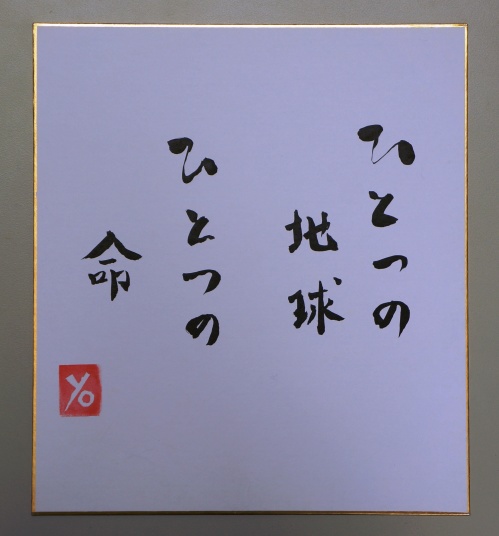 ひとつの
地球
ひとつの
命
YO